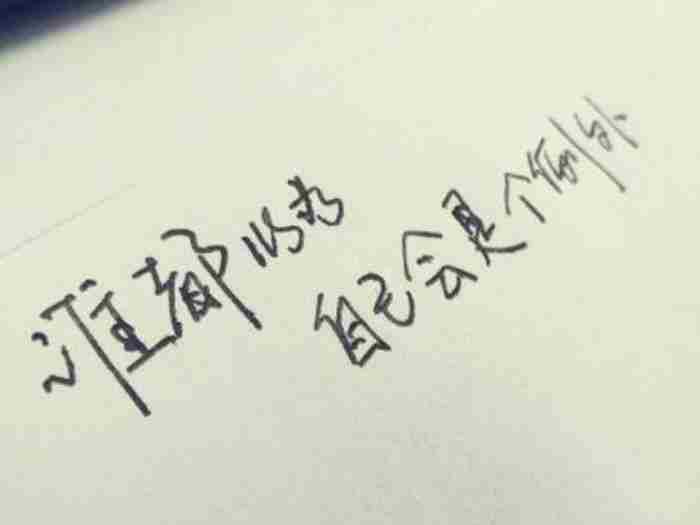 谁都以为
自己会是个例外